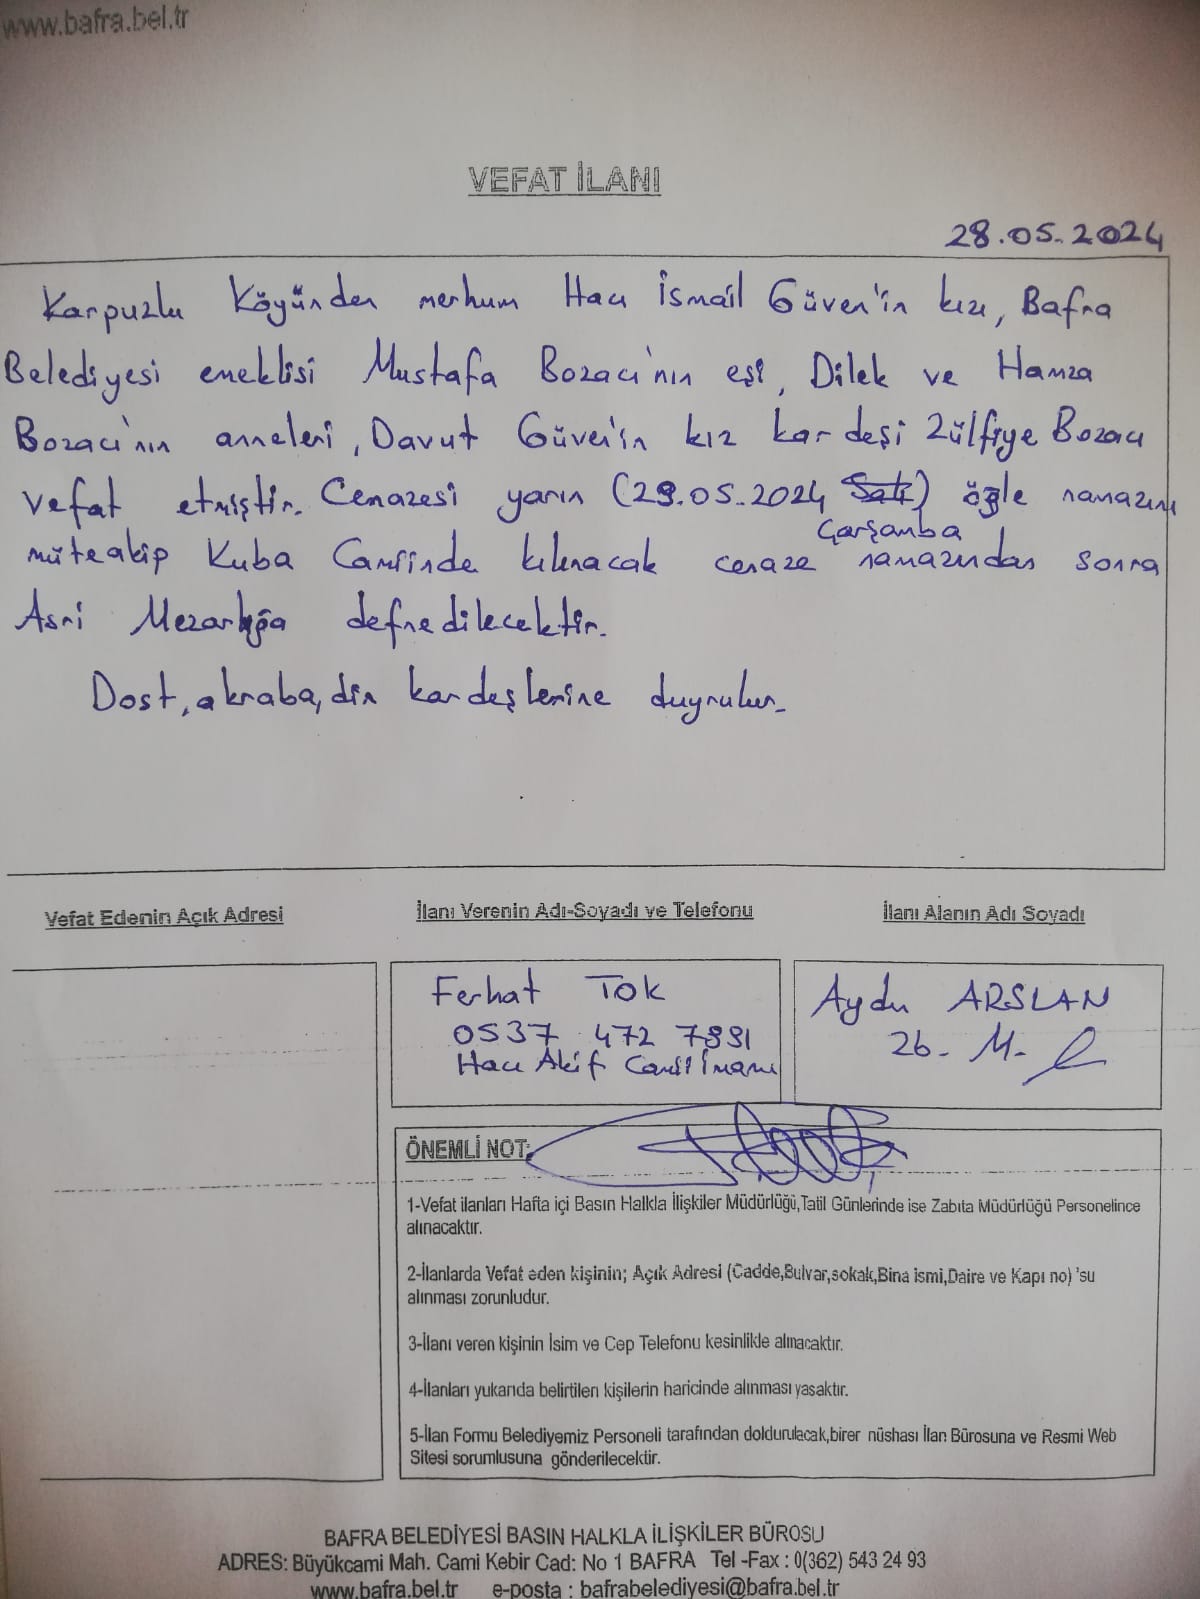 www.bafra.bel.tr
VEFAT İLANI
28.05.2024
Karpuzlu Köyünden merhum Hacı İsmail Güven'in kızı, Bafra
Belediyesi emeklisi Mustafa Bozacı'nın eşi, Dilek ve Hamza
Bozacı'nın anneleri, Davut Güven'in kız kardeşi Zülfiye Bozacı
vefat etmiştir. Cenazesi yarın (29.05.2024 Salı) öğle namazını
Çarşamba
müteakip Kuba Camiinde kılınacak cenaze namazından sonra
Asri Mezarlığa defnedilecektir.
Dost, akraba, din kardeşlerine duyrulur.
Vefat Edenin Açık Adresi
İlanı Verenin Adı-Soyadı ve Telefonu
İlanı Alanın Adı Soyadı
Ferhat TOK
0537 472 7991
Hacı Akif Camii İmamı
Aydın ARSLAN
26. M.
ÖNEMLİ NOT:
1-Vefat ilanları Hafta içi Basın Halkla İlişkiler Müdürlüğü,Tatil Günlerinde ise Zabıta Müdürlüğü Personelince
alınacaktır.
2-İlanlarda Vefat eden kişinin; Açık Adresi (Cadde,Bulvar,sokak,Bina ismi,Daire ve Kapı no) 'su
alınması zorunludur.
3-İlanı veren kişinin İsim ve Cep Telefonu kesinlikle alınacaktır.
4-İlanları yukarıda belirtilen kişilerin haricinde alınması yasaktır.
5-İlan Formu Belediyemiz Personeli tarafından doldurulacak,birer nüshası İlan Bürosuna ve Resmi Web
Sitesi sorumlusuna gönderilecektir.
BAFRA BELEDİYESİ BASIN HALKLA İLİŞKİLER BÜROSU
ADRES: Büyükcami Mah. Cami Kebir Cad: No 1 BAFRA Tel -Fax : 0(362) 543 24 93
www.bafra.bel.tr e-posta : bafrabelediyesi@bafra.bel.tr